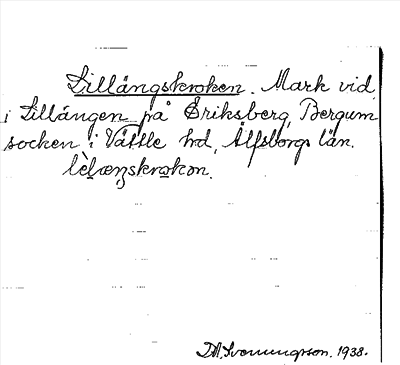 Lillängskroken. Mark vid
i Lillängen på Eriksberg, Bergum
socken i Vättle hd, Älfsborgs län.
lèlæŋskrokon.
1938.